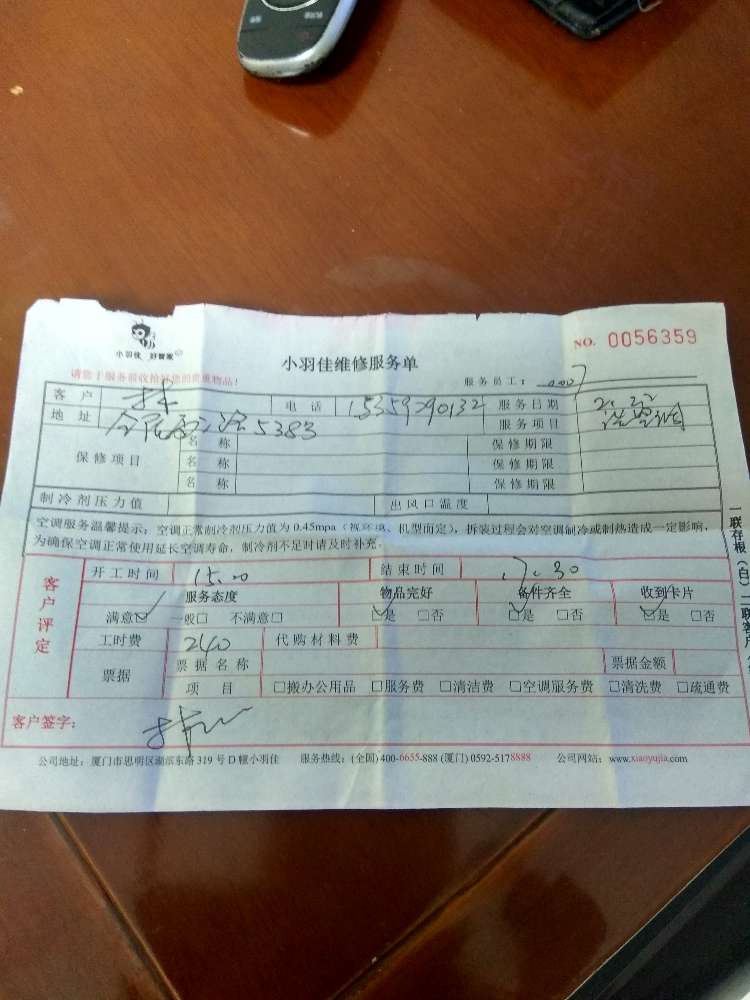 小羽佳 好管家
小羽佳维修服务单
NO. 0056359
请您于服务前收拾好您的贵重物品!
服务员工:
客户 林 电话 服务日期
地址 5383 服务项目 洗空调
保修项目 名称 保修期限
名称 保修期限
名称 保修期限
制冷剂压力值 出风口温度
空调服务温馨提示:空调正常制冷剂压力值为0.45mpa(视环境、机型而定),拆装过程会对空调制冷或制热造成一定影响,
为确保空调正常使用延长空调寿命,制冷剂不足时请及时补充。
客户评定
开工时间 15.00 结束时间 17.30
服务态度 物品完好 备件齐全 收到卡片
满意☑ 一般□ 不满意□ ☑是 □否 ☑是 □否 ☑是 □否
工时费 240 代购材料费
票据 票据名称 票据金额
项目 □搬办公用品 □服务费 □清洁费 □空调服务费 □清洗费 □疏通费
客户签字: 林
公司地址:厦门市思明区湖滨东路319号D幢小羽佳 服务热线:(全国)400-6655-888 (厦门)0592-5178888 公司网站:www.xiaoyujia.com
一联存根(白)二联客户